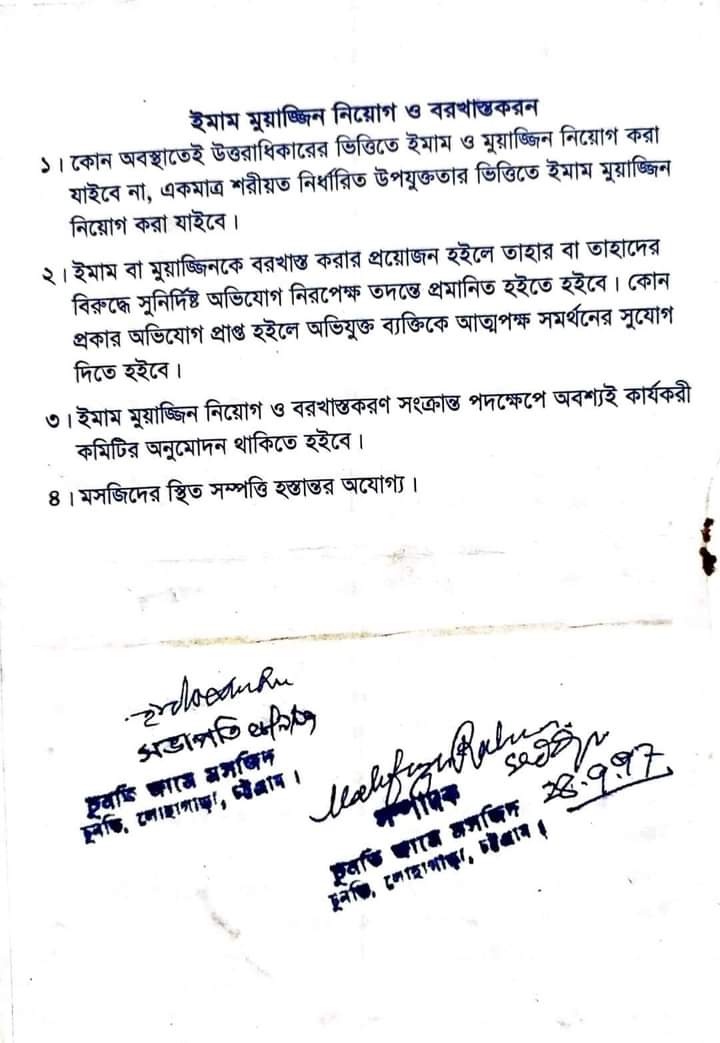 ইমাম মুয়াজ্জিন নিয়োগ ও বরখাস্তকরন
১। কোন অবস্থাতেই উত্তরাধিকারের ভিত্তিতে ইমাম ও মুয়াজ্জিন নিয়োগ করা
যাইবে না, একমাত্র শরীয়ত নির্ধারিত উপযুক্ততার ভিত্তিতে ইমাম মুয়াজ্জিন
নিয়োগ করা যাইবে।
২। ইমাম বা মুয়াজ্জিনকে বরখাস্ত করার প্রয়োজন হইলে তাহার বা তাহাদের
বিরুদ্ধে সুনির্দিষ্ট অভিযোগ নিরপেক্ষ তদন্তে প্রমানিত হইতে হইবে। কোন
প্রকার অভিযোগ প্রাপ্ত হইলে অভিযুক্ত ব্যক্তিকে আত্মপক্ষ সমর্থনের সুযোগ
দিতে হইবে।
৩। ইমাম মুয়াজ্জিন নিয়োগ ও বরখাস্তকরণ সংক্রান্ত পদক্ষেপে অবশ্যই কার্যকরী
কমিটির অনুমোদন থাকিতে হইবে।
৪। মসজিদের স্থিত সম্পত্তি হস্তান্তর অযোগ্য।
সভাপতি
চুনতি জামে মসজিদ
চুনতি, লোহাগাড়া, চট্টগ্রাম।
28.9.97
সম্পাদক
চুনতি জামে মসজিদ
চুনতি, লোহাগাড়া, চট্টগ্রাম।